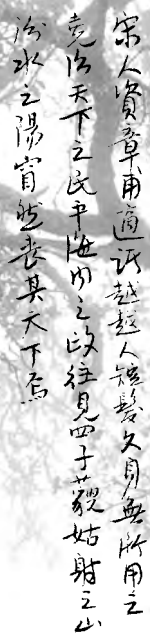 宋人資章甫適諸越越人短髮文身無所用之
堯治天下之民平海内之政往見四子藐姑射之山
汾水之陽窅然喪其天下焉